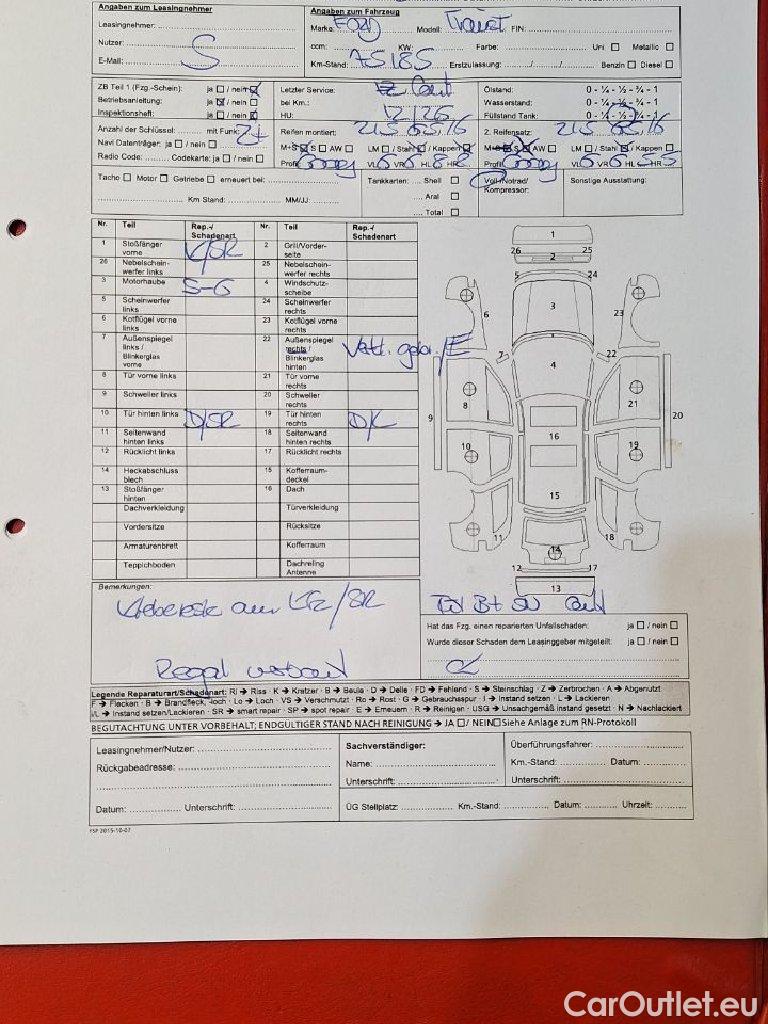 Angaben zum Leasingnehmer
Leasingnehmer:
Nutzer: S
E-Mail:
Angaben zum Fahrzeug
Marke: Ford Modell: Transit FIN:
ccm: KW: Farbe: Uni □ Metallic □
Km-Stand: 75185 Erstzulassung: / / Benzin □ Diesel □
ZB Teil 1 (Fzg.-Schein): ja □ / nein ☒
Betriebsanleitung: ja ☒ / nein □
Inspektionsheft: ja □ / nein ☒
Letzter Service:
bei Km.:
HU: 12/26
Ölstand: 0 - ¼ - ½ - ¾ - 1
Wasserstand: 0 - ¼ - ½ - ¾ - 1
Füllstand Tank: 0 - ¼ - ½ - ¾ - 1
Anzahl der Schlüssel: mit Funk: 2+
Navi Datenträger: ja □ / nein □
Radio Code: Codekarte: ja □ / nein □
Reifen montiert: 215 65/16
M+S ☒ S □ AW □ LM □ / Stahl □ / Kappen □
Profil VL 6 VR 6 HL 8 HR 8
2. Reifensatz: 215 65/16
M+S □ S ☒ AW □ LM □ / Stahl ☒ / Kappen □
Profil VL 6 VR 6 HL 5 HR 5
Tacho □ Motor □ Getriebe □ erneuert bei:
Km Stand: MM/JJ:
Tankkarten: Shell □
Aral □
Total □
Voll-/Notrad/
Kompressor:
Sonstige Ausstattung:
Nr. Teil Rep.-/Schadenart Nr. Teil Rep.-/Schadenart
1 Stoßfänger vorne K/SR 2 Grill/Vorderseite
26 Nebelscheinwerfer links 25 Nebelscheinwerfer rechts
3 Motorhaube S-G 4 Windschutzscheibe
5 Scheinwerfer links 24 Scheinwerfer rechts
6 Kotflügel vorne links 23 Kotflügel vorne rechts
7 Außenspiegel links / Blinkerglas vorne 22 Außenspiegel rechts / Blinkerglas hinten
8 Tür vorne links 21 Tür vorne rechts
9 Schweller links 20 Schweller rechts
10 Tür hinten links D/SR 19 Tür hinten rechts D/K
11 Seitenwand hinten links 18 Seitenwand hinten rechts
12 Rücklicht links 17 Rücklicht rechts
14 Heckabschluss blech 15 Kofferraumdeckel
13 Stoßfänger hinten 16 Dach
Dachverkleidung Türverkleidung
Vordersitze Rücksitze
Armaturenbrett Kofferraum
Teppichboden Dachreling Antenne
1
26 2 25
5 24
6 3 23
7 4 22
9 8 21 20
10 16 19
15
11 14 18
12 17
13
Bemerkungen:
Regal verbaut
Hat das Fzg. einen reparierten Unfallschaden: ja □ / nein □
Wurde dieser Schaden dem Leasinggeber mitgeteilt: ja □ / nein □
Legende Reparaturart/Schadenart: RI ➔ Riss · K ➔ Kratzer · B ➔ Beule · D ➔ Delle · FD ➔ Fehlend · S ➔ Steinschlag · Z ➔ Zerbrochen · A ➔ Abgenutzt
F ➔ Flecken · B ➔ Brandfleck, -loch · Lo ➔ Loch · VS ➔ Verschmutzt · Ro ➔ Rost · G ➔ Gebrauchsspur · I ➔ Instand setzen · L ➔ Lackieren
I/L ➔ Instand setzen/Lackieren · SR ➔ smart repair · SP ➔ spot repair · E ➔ Erneuern · R ➔ Reinigen · USG ➔ Unsachgemäß instand gesetzt · N ➔ Nachlackiert
BEGUTACHTUNG UNTER VORBEHALT; ENDGÜLTIGER STAND NACH REINIGUNG ➔ JA □/ NEIN□Siehe Anlage zum RN-Protokoll
Leasingnehmer/Nutzer:
Rückgabeadresse:
Datum: Unterschrift:
Sachverständiger:
Name:
Unterschrift:
Überführungsfahrer:
Km.-Stand: Datum:
Unterschrift:
ÜG Stellplatz: Km.-Stand: Datum: Uhrzeit:
FSP 2I015-10-07
CarOutlet.eu